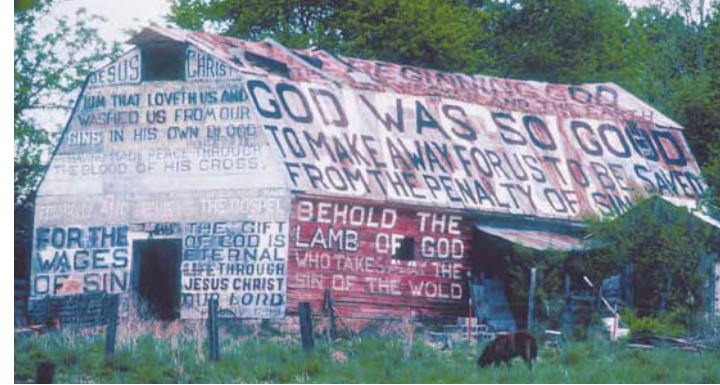 JESUS CHRIST
HIM THAT LOVETH US AND
WASHED US FROM OUR
SINS IN HIS OWN BLOOD
HAVING MADE PEACE THROUGH
THE BLOOD OF HIS CROSS.
THE GOSPEL
FOR THE
WAGES
OF SIN
THE GIFT
OF GOD IS
ETERNAL
LIFE THROUGH
JESUS CHRIST
OUR LORD
BEGINNING GOD
AND THE EARTH
GOD WAS SO GOOD
TO MAKE A WAY FOR US TO BE SAVED
FROM THE PENALTY OF SIN
BEHOLD THE
LAMB OF GOD
WHO TAKES AWAY THE
SIN OF THE WOLD